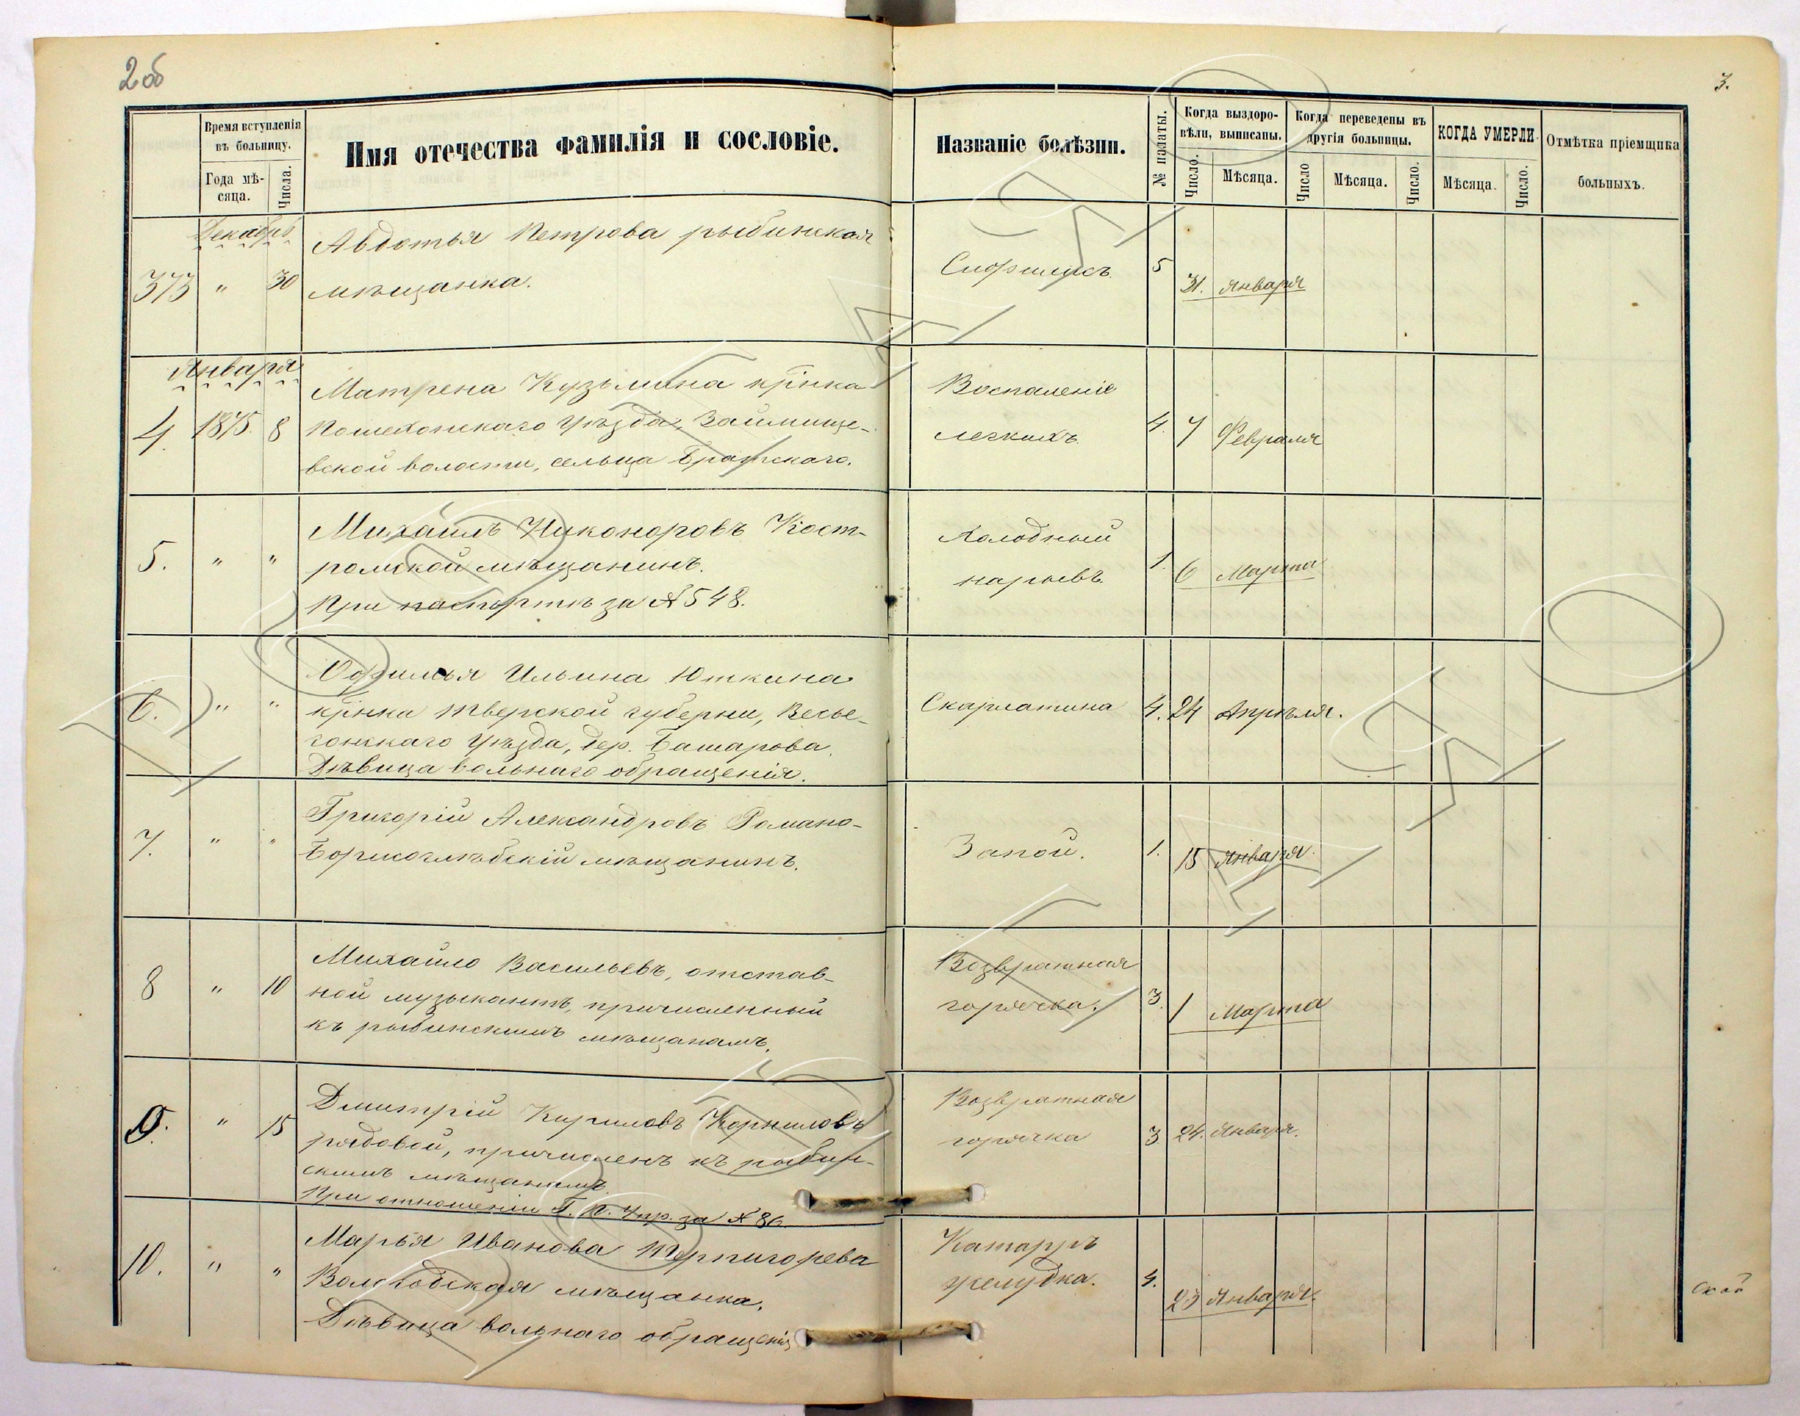 2об
3.
Время вступленія въ больницу.
Года мѣсяца.
Числа.
Имя отечества фамилія и сословіе.
Названіе болѣзни.
№ палаты.
Когда выздоровѣли, выписаны.
Число.
Мѣсяца.
Когда переведены въ другія больницы.
Число
Мѣсяца.
Число.
КОГДА УМЕРЛИ.
Мѣсяца.
Число.
Отмѣтка пріемщика больныхъ.
Декабрь
Авдотья Петрова рыбинская
373 " 30 мѣщанка.
Сифилисъ 5 31. января
Января
Матрена Кузьмина кр̄нка
4. 1875 8 Пошехонскаго Уѣзда, Займище-
вской волости, сельца Братскаго.
Воспаленіе
легкихъ 4. 7 Февраля
Михаилъ Никоноровъ Кост-
5. " " ромской мѣщанинъ.
При паспортѣ за № 548.
Холодный
нарывъ 1. 6 Марта
Офимья Ильина Юткина
6. " " кр̄нка Тверской губерни, Весье-
гонскаго Уѣзда, дер. Башарова.
Дѣвица вольнаго обращенія.
Скарлатина 4. 24 Апрѣля.
Григорій Александровъ Романо-
7. " " Борисоглѣбскій мѣщанинъ.
Запой. 1. 15 Января.
Михайло Васильевъ, отстав-
8 " 10 ной музыкантъ, причисленный
къ рыбинскимъ мѣщанамъ.
Возвратная
горячка. 3. 1 Марта
Дмитрій Кириловъ Корниловъ
9. " 15 рядовой, причисленъ къ рыбин-
скимъ мѣщанамъ.
При отношеніи Г. П. Упр. за № 86.
Возвратная
горячка 3 24. Января.
Марья Иванова Терпигорева
10. " " Вологодская мѣщанка.
Дѣвица вольнаго обращенія
Катарръ
желудка. 4. 23 Января.
ской